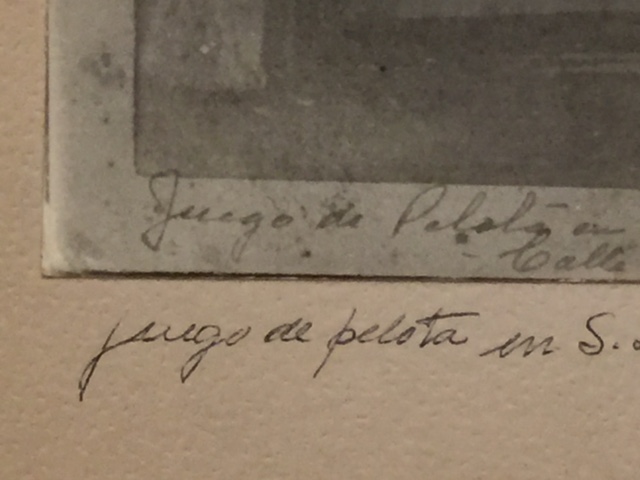 Juego de Pelota en
- Calle
juego de pelota en S.